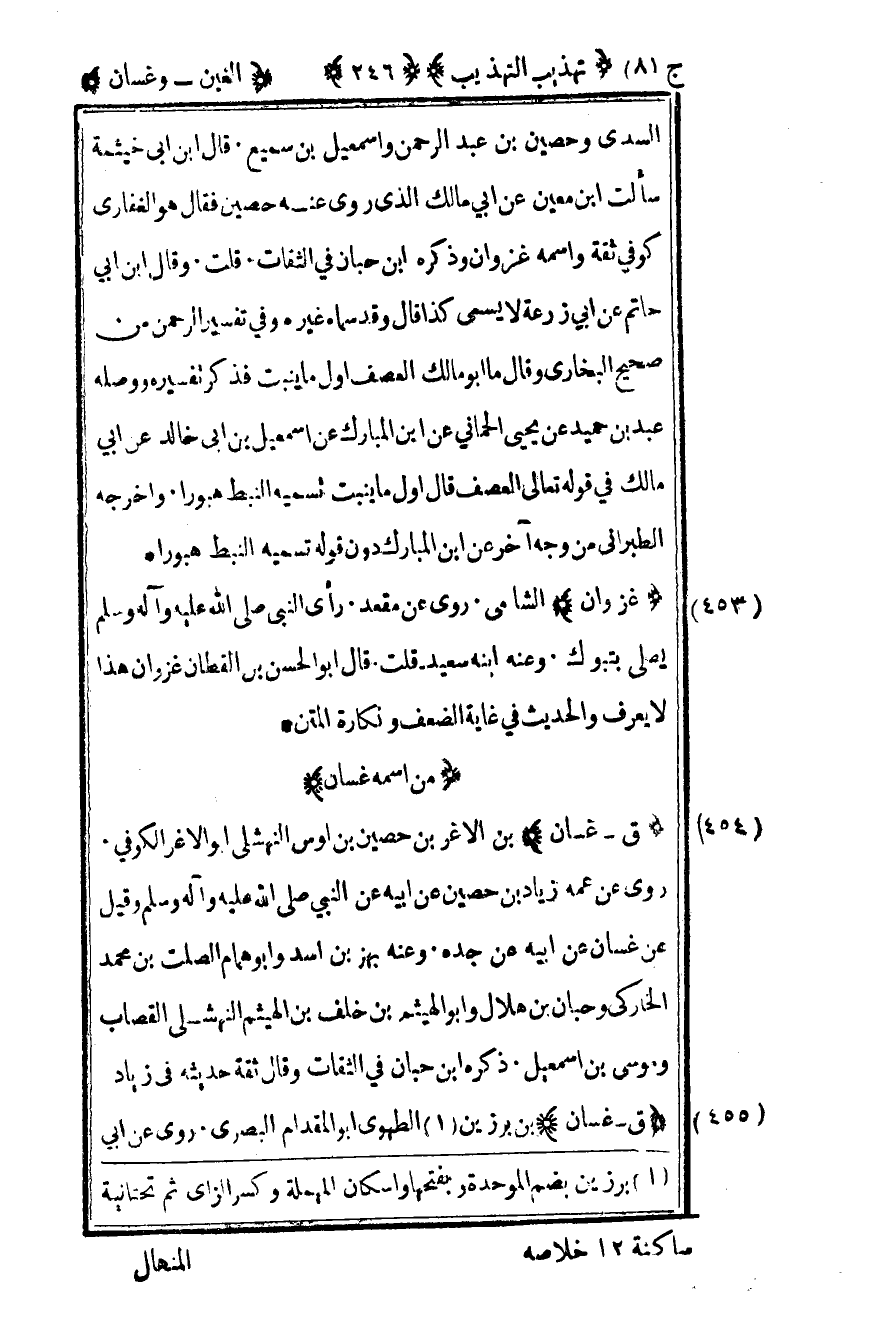 ج (٨) ﴿ تهذيب التهذيب ﴾ ﴿ ٢٤٦ ﴾ ﴿ الغين ـ وغسان ﴾
السدى وحصين بن عبد الرحمن واسمعيل بن سميع · قال ابن ابى خيثمة
سألت ابن معين عن ابي مالك الذى روى عنه حصين فقال هو الغفارى
كوفي ثقة واسمه غزوان وذكره ابن حبان في الثقات · قلت · وقال ابن ابي
حاتم عن ابي زرعة لا يسمى كذا قال وقد سماه غيره وفي تفسير الرحمن من
صحيح البخارى وقال ما ابو مالك العصف اول ما ينبت فذكر تفسيره ووصله
عبد بن حميد عن يحيى الحماني عن ابن المبارك عن اسمعيل بن ابى خالد عن ابي
مالك في قوله تعالى العصف قال اول ما ينبت تسميه النبط هبورا · واخرجه
الطبرانى من وجه آخر عن ابن المبارك دون قوله تسميه النبط هبورا ·
(٤٥٣) ﴿ غزوان ﴾ الشامى · روى عن مقعد · رأى النبى صلى الله عليه وآله وسلم
يصلى بتبوك · وعنه ابنه سعيد · قلت · قال ابو الحسن بن القطان غزوان هذا
لا يعرف والحديث في غاية الضعف ونكارة المتن ·
﴿ من اسمه غسان ﴾
(٤٥٤) ﴿ ق ـ غسان ﴾ بن الاغر بن حصين بن اوس النهشلى ابو الاغر الكوفي ·
روى عن عمه زياد بن حصين عن ابيه عن النبي صلى الله عليه وآله وسلم وقيل
عن غسان عن ابيه عن جده · وعنه بهز بن اسد وابو همام الصلت بن محمد
الخاركى وحبان بن هلال وابو الهيثم بن خلف بن الهيثم النهشلى القصاب
وموسى بن اسمعيل · ذكره ابن حبان في الثقات وقال ثقة حديثه فى زياد
(٤٥٥) ﴿ ق ـ غسان ﴾ بن برزين (١) الطهوى ابو المقدام البصرى · روى عن ابي
(١) برزين بضم الموحدة وبفتحها واسكان المهملة وكسر الزاى ثم تحتانية
ساكنة ١٢ خلاصه
المنهال